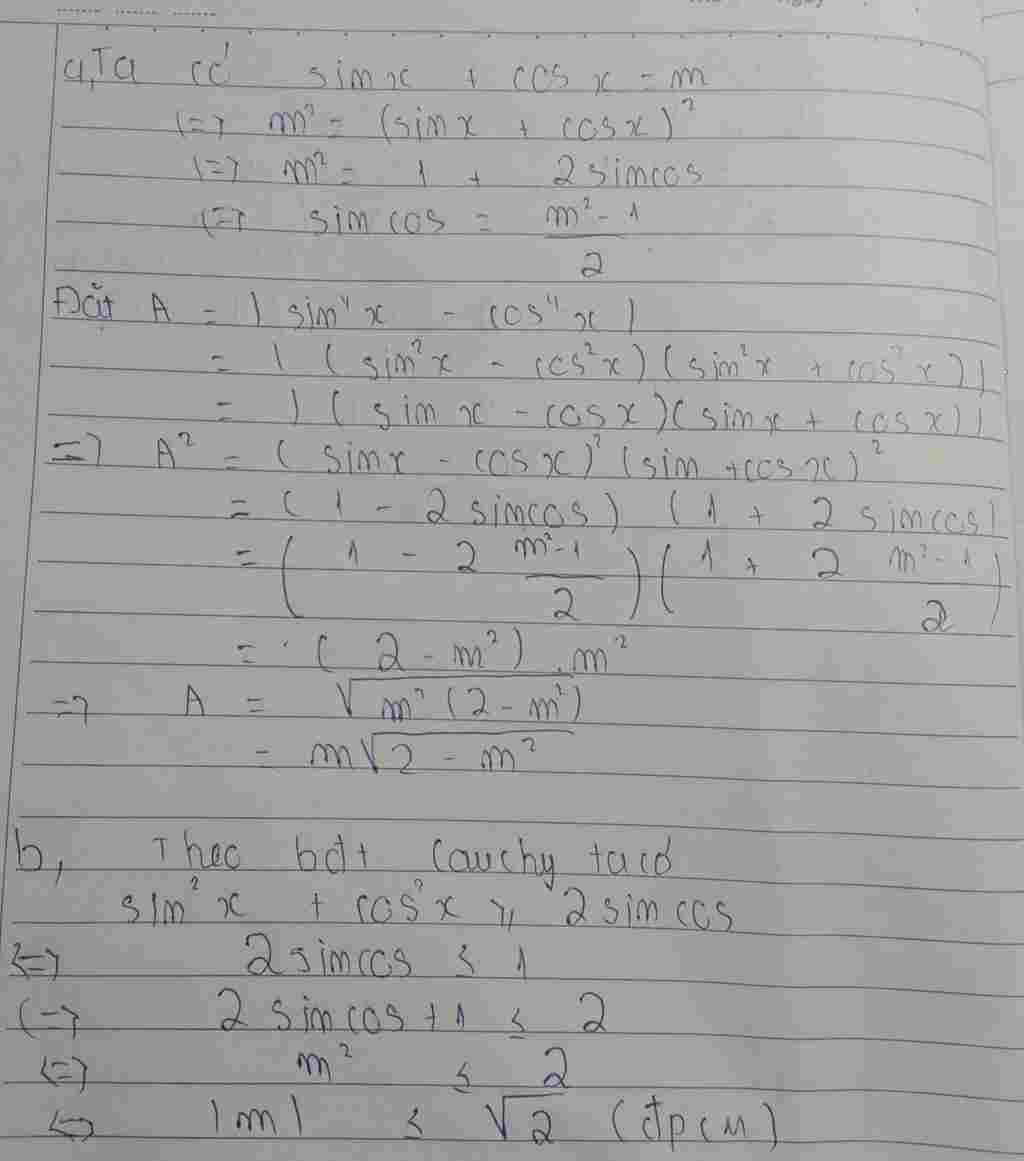 a, Ta có sin x + cos x = m
<=> m² = (sin x + cos x)²
<=> m² = 1 + 2 sin cos
<=> sin cos = (m² - 1)/2
Đặt A = | sin⁴x - cos⁴x |
= | (sin²x - cos²x)(sin²x + cos²x) |
= | (sin x - cos x)(sin x + cos x) |
=> A² = (sin x - cos x)² (sin + cos x)²
= (1 - 2 sin cos) (1 + 2 sin cos)
= (1 - 2 (m² - 1)/2) (1 + 2 (m² - 1)/2)
= (2 - m²) . m²
=> A = √(m² (2 - m²))
= m√(2 - m²)
b, Theo bđt Cauchy ta có
sin²x + cos²x ≥ 2 sin cos
<=> 2 sin cos ≤ 1
<=> 2 sin cos + 1 ≤ 2
<=> m² ≤ 2
<=> |m| ≤ √2 (đpcm)